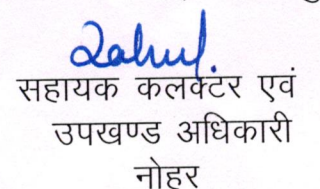 Rahul.
सहायक कलक्टर एवं
उपखण्ड अधिकारी
नोहर